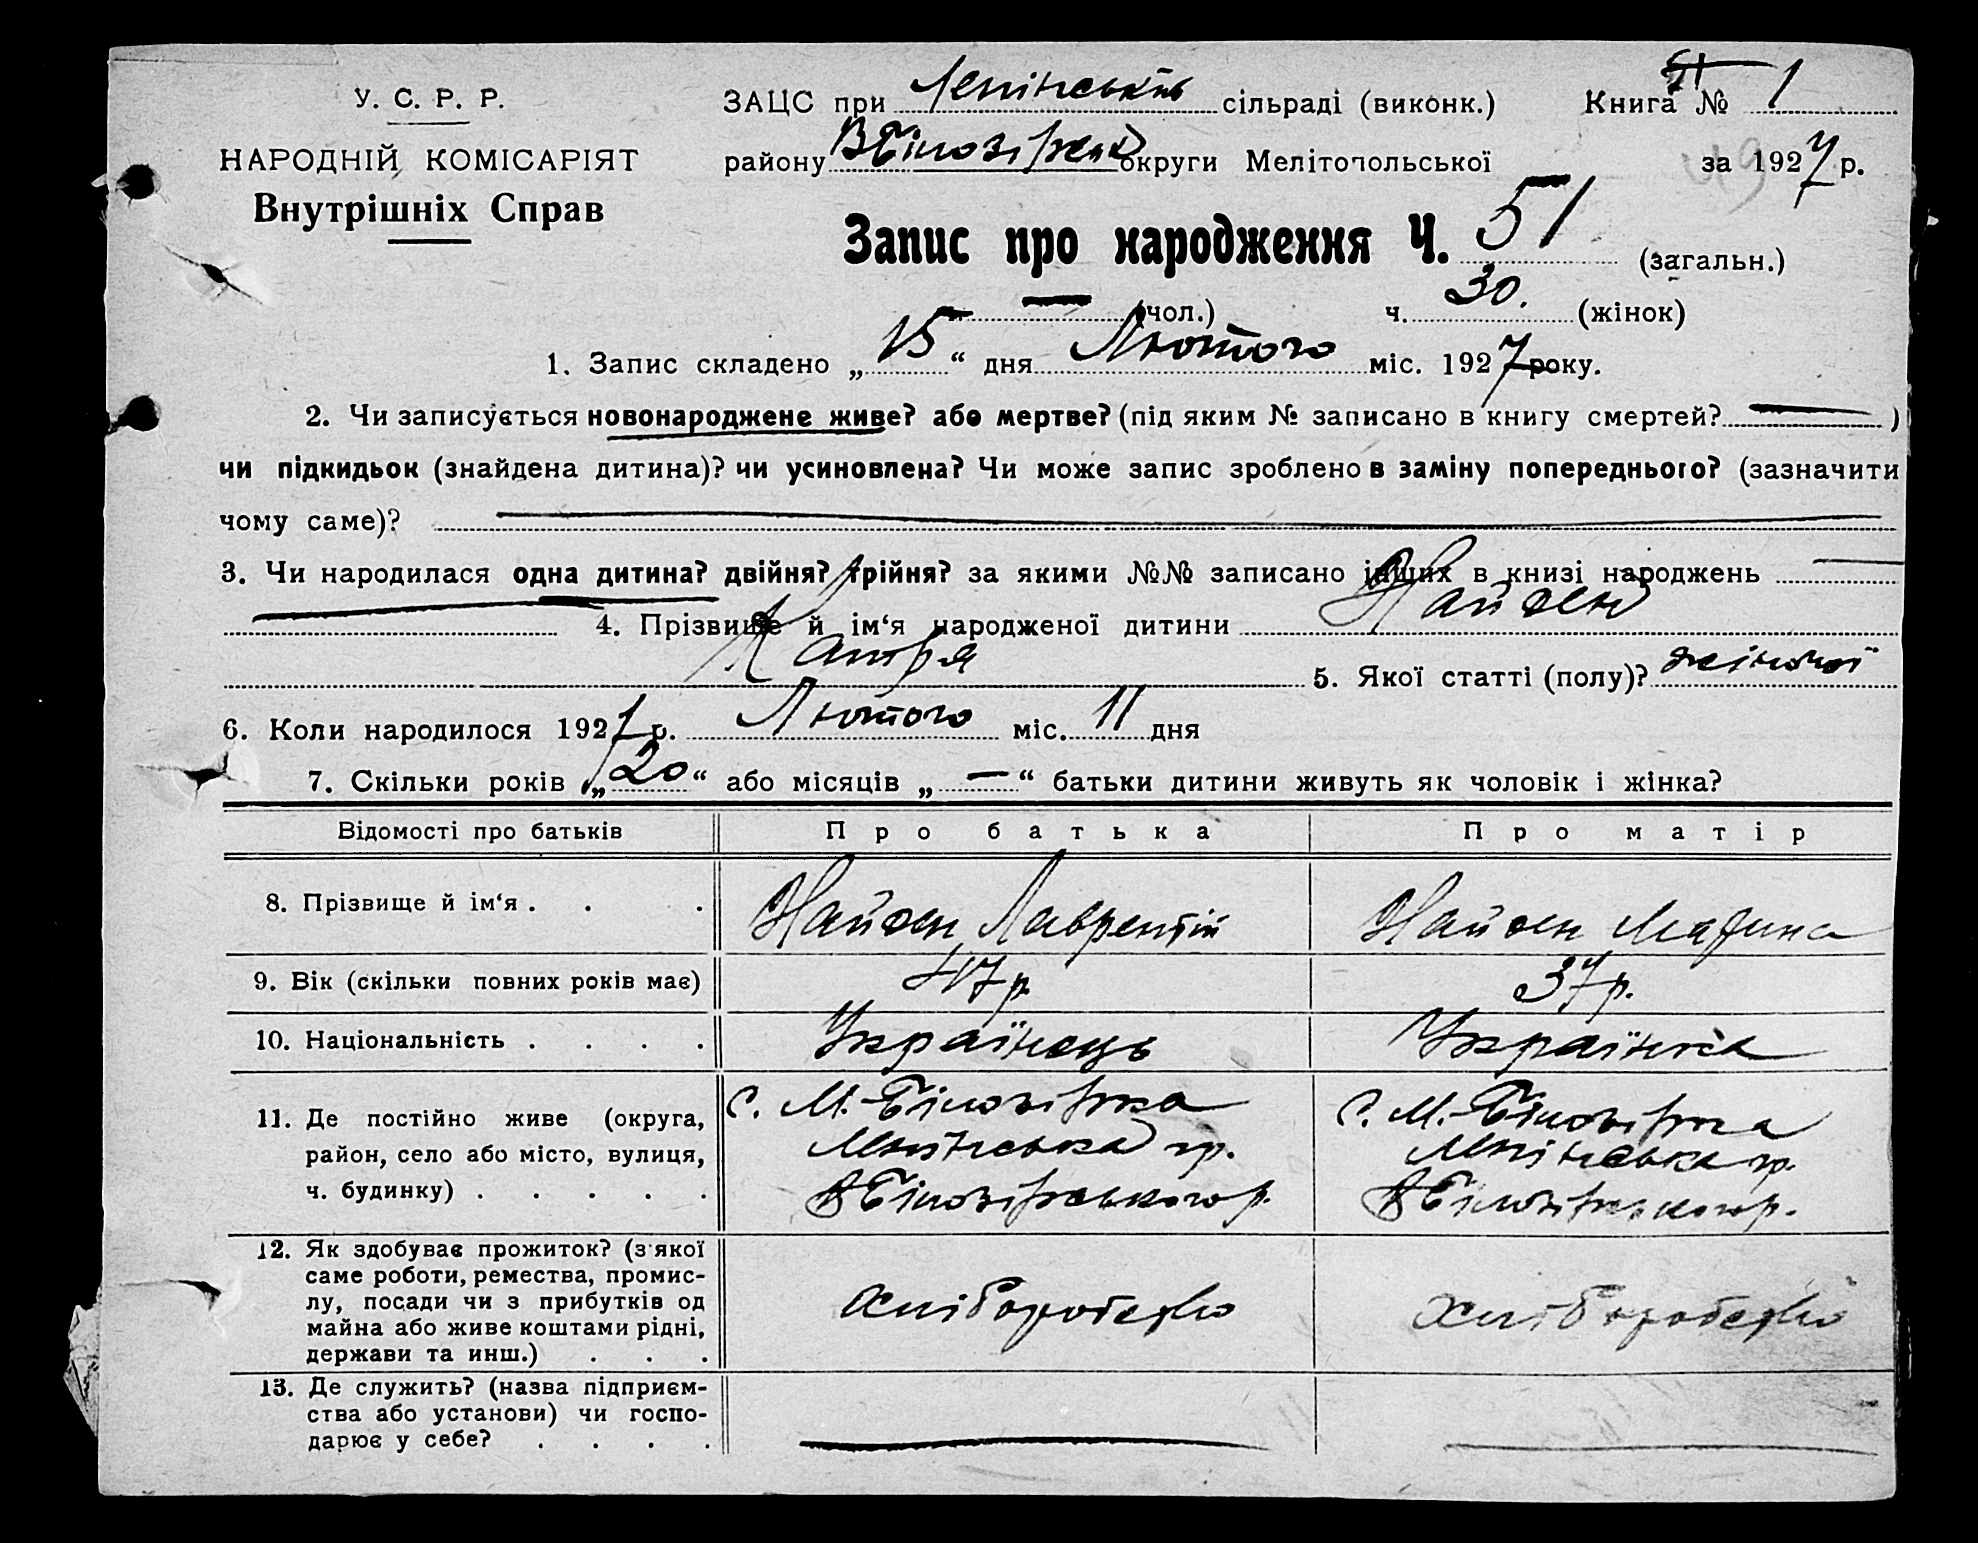 У. С. Р. Р.
НАРОДНІЙ КОМІСАРІЯТ
Внутрішніх Справ
ЗАЦС при Ленінській сільраді (виконк.) Книга № 1
району В Білозірськ округи Мелітопольської за 1927 р.
Запис про народження Ч. 51 (загальн.)
— (чол.) ч. 30. (жінок)
1. Запис складено „15“ дня Лютого міс. 1927 року.
2. Чи записується новонароджене живе? або мертве? (під яким № записано в книгу смертей? — )
чи підкидьок (знайдена дитина)? чи усиновлена? Чи може запис зроблено в заміну попереднього? (зазначити
чому саме)? —
3. Чи народилася одна дитина? двійня? трійня? за якими №№ записано інших в книзі народжень —
— 4. Прізвище й ім‘я народженої дитини Найден
Катря 5. Якої статті (полу)? жіночої
6. Коли народилося 1927 р. Лютого міс. 11 дня
7. Скільки років „20“ або місяців „—“ батьки дитини живуть як чоловік і жінка?
Відомості про батьків Про батька Про матір
8. Прізвище й ім‘я . . . Найден Лаврентій Найден Марина
9. Вік (скільки повних років має) 47 р. 37 р.
10. Національність . . . . Українець Українка
11. Де постійно живе (округа,
район, село або місто, вулиця,
ч. будинку) . . . . .
с. М.-Білозірка
Ленінська гр.
В Білозірського р.
с. М.-Білозірка
Ленінська гр.
В Білозірського р.
12. Як здобуває прожиток? (з'якої
саме роботи, ремества, промис-
лу, посади чи з прибутків од
майна або живе коштами рідні,
держави та инш.) . . .
Хліборобство
Хліборобство
13. Де служить? (назва підприєм-
ства або установи) чи госпо-
дарює у себе? . . . .
— —